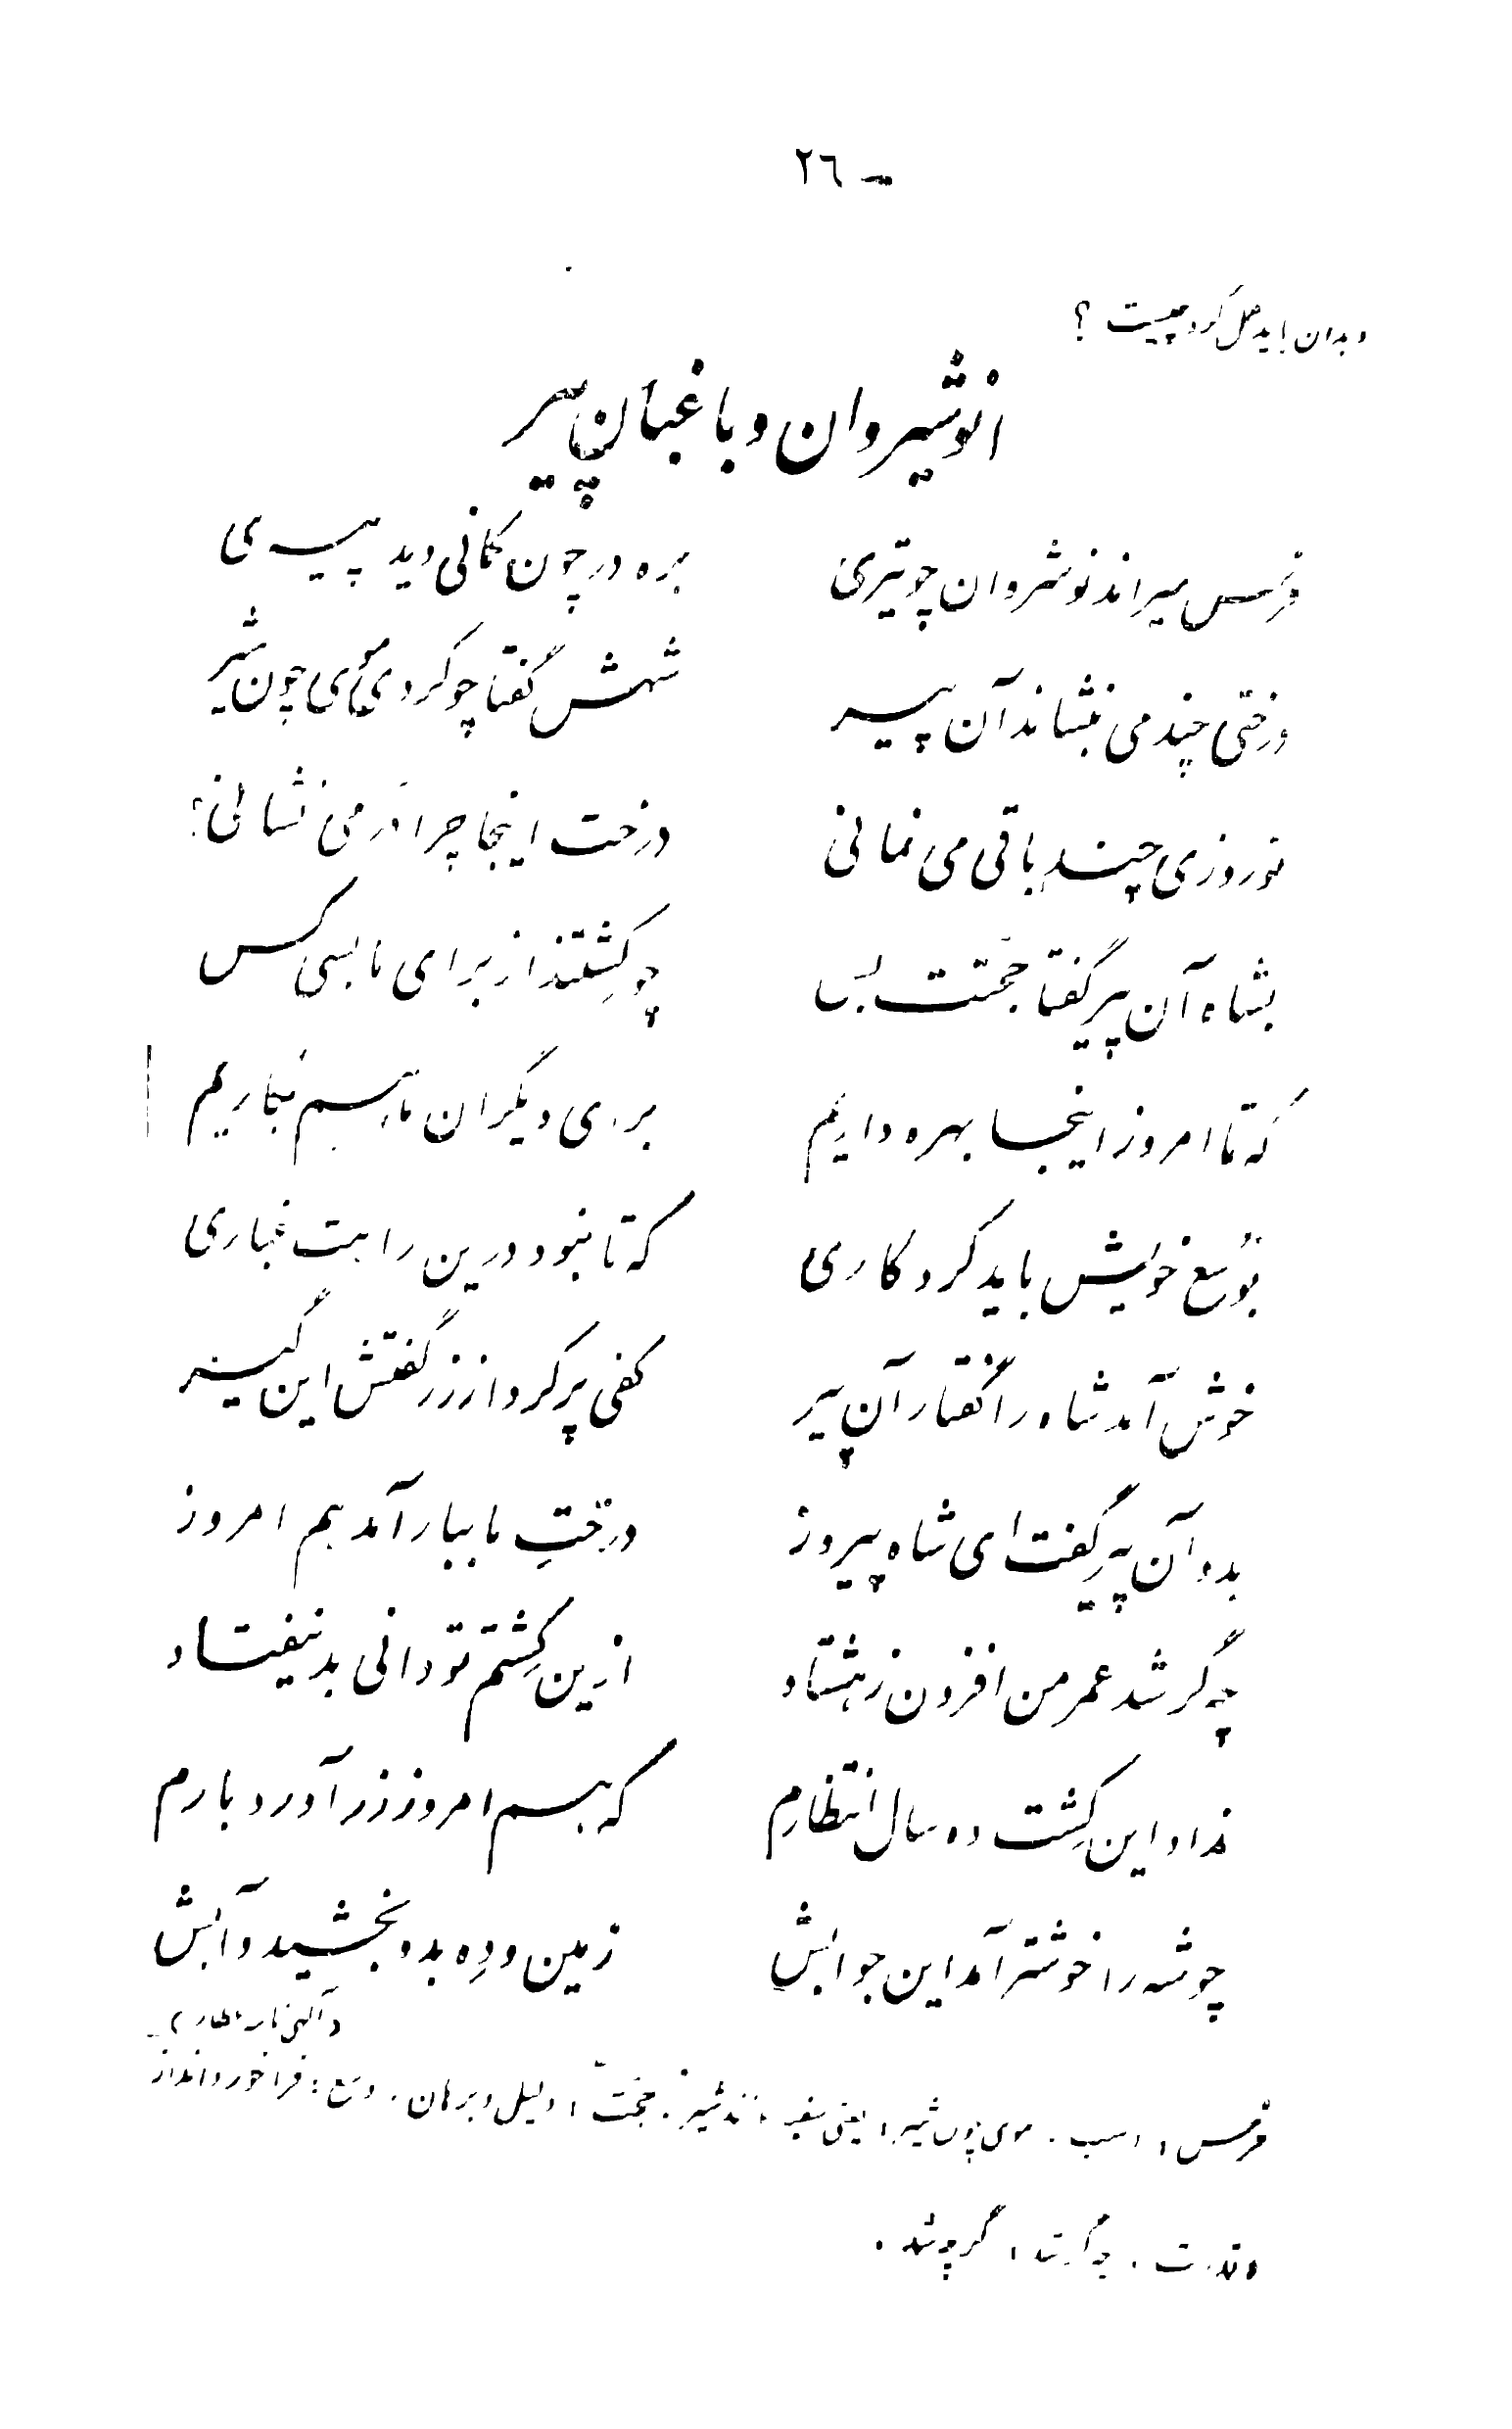 ٢٦ -
و بدان باید عمل کرد چیست ؟
انوشیروان و باغبان پیر
فرس میراند نوشروان چو تیری بره در چون کمانی دید پیری
درختی چند می‌نشاند آن پیر شهش گفتا چو کردی موی چون شیر
تو روزی چند باقی می نمانی درخت اینجا چرا در می نشانی؟
بشاه آن پیر گفتا حجّتت بس چو کِشتند از برای ما بسی کس
که تا امروز اینجا بهره داریم برای دیگران ما هم بکاریم
بوُسع خویش باید کرد کاری که تا نبود درین راهت غباری
خوش آمد شاه را گفتار آن پیر کفی پر کرد از زر گفتش این گیر
بدو آن پیر گفت ای شاه پیروز درختِ ما ببار آمد هم امروز
چه گر شد عمر من افزون ز هشتاد ازین کِشتم تو دانی بد نیفتاد
نداد این کِشت ده سال انتظارم که هم امروز زر آورد بارم
چو شه را خوشتر آمد این جوابش زمین و دِه بدو بخشید و آبش
فرس : اسب . موی چون شیر : یعنی سفید مانند شیر . حجّت : دلیل و برهان . وسع : فراخور و انداز
و قدرت . چه گر شد : گر چه شد .